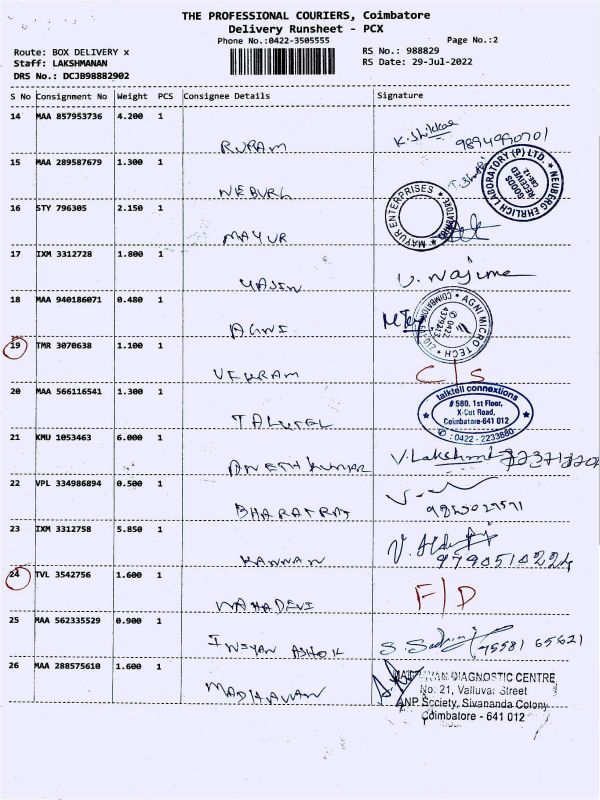 THE PROFESSIONAL COURIERS, Coimbatore
Delivery Runsheet - PCX
Phone No.:0422-3505555
Page No.:2
Route: BOX DELIVERY x
RS No.: 988829
Staff: LAKSHMANAN
RS Date: 29-Jul-2022
DRS No.: DCJB98882902
S No Consignment No Weight PCS Consignee Details Signature
14 MAA 857953736 4.200 1
RUPAM K. 9894990701
15 MAA 289587679 1.300 1
NEUBERG EHRLICH LABORATORY (P) LTD. GOODS RECEIVED CBE-12
16 STY 796305 2.150 1
MAYUR MAYUR ENTERPRISES
17 IXM 3312728 1.800 1
YASIN
18 MAA 940186071 0.480 1
AGNI AGNI MICRO TECH
19 TMR 3070638 1.100 1
VEKRAM C/S
20 MAA 566116541 1.300 1
talktell connextions
# 580, 1st Floor,
X-Cut Road,
Coimbatore-641 012
0422 - 2233880
21 KMU 1053463 6.000 1
KUMAR V. Lakshmi
22 VPL 334986894 0.500 1
BHARATRAJ
23 IXM 3312758 5.850 1
KANNAN 9790510224
24 TVL 3542756 1.600 1
MAHADEVI F/D
25 MAA 562335529 0.900 1
INIYAN ASHOK 75581 65621
26 MAA 288575610 1.600 1
MADHAVAN
DIAGNOSTIC CENTRE
No. 21, Valluvar Street
ANP Society, Sivananda Colony
Coimbatore - 641 012